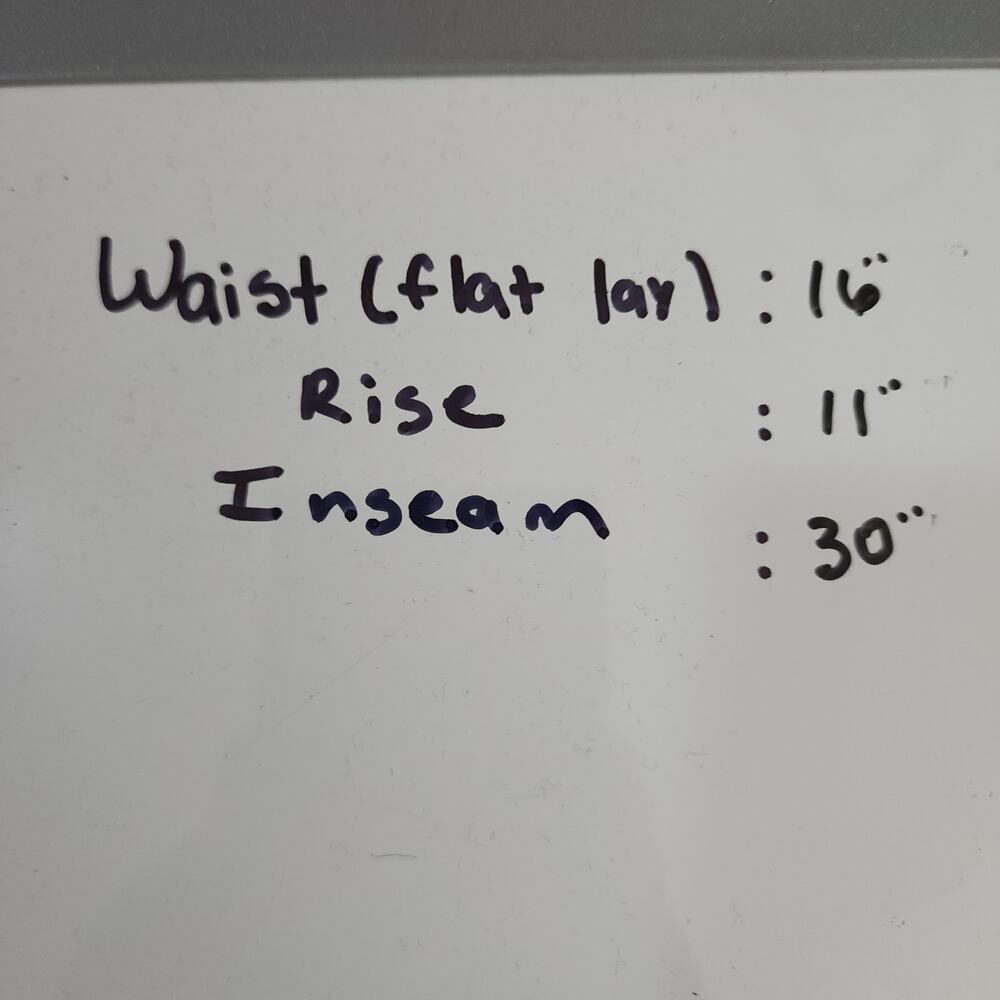 Waist (flat lay) : 16"
Rise : 11"
Inseam : 30"